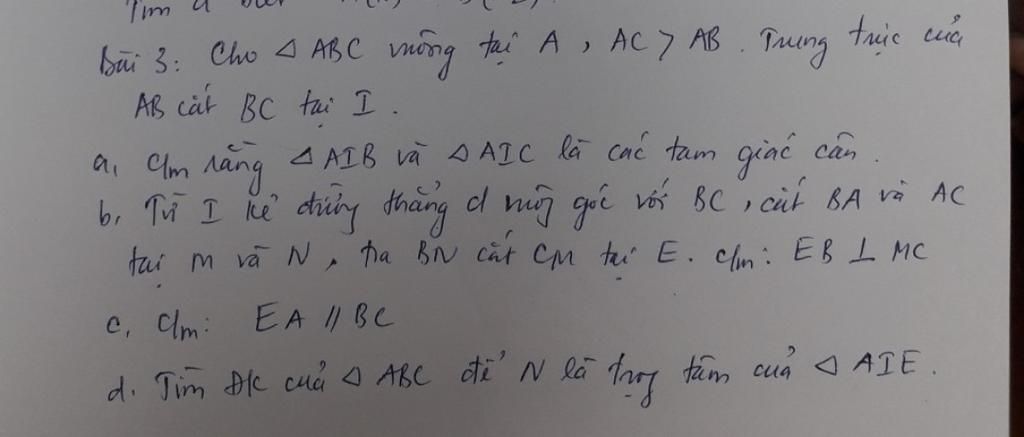 Tìm a
Bài 3: Cho △ ABC vuông tại A, AC > AB. Trung trực của
AB cắt BC tại I.
a, C/m rằng △ AIB và △ AIC là các tam giác cân.
b, Từ I kẻ đường thẳng d vuông góc với BC, cắt BA và AC
tại M và N, tia BN cắt CM tại E. c/m: EB ⊥ MC
c, C/m: EA // BC
d. Tìm ĐK của △ ABC để N là trọng tâm của △ AIE.